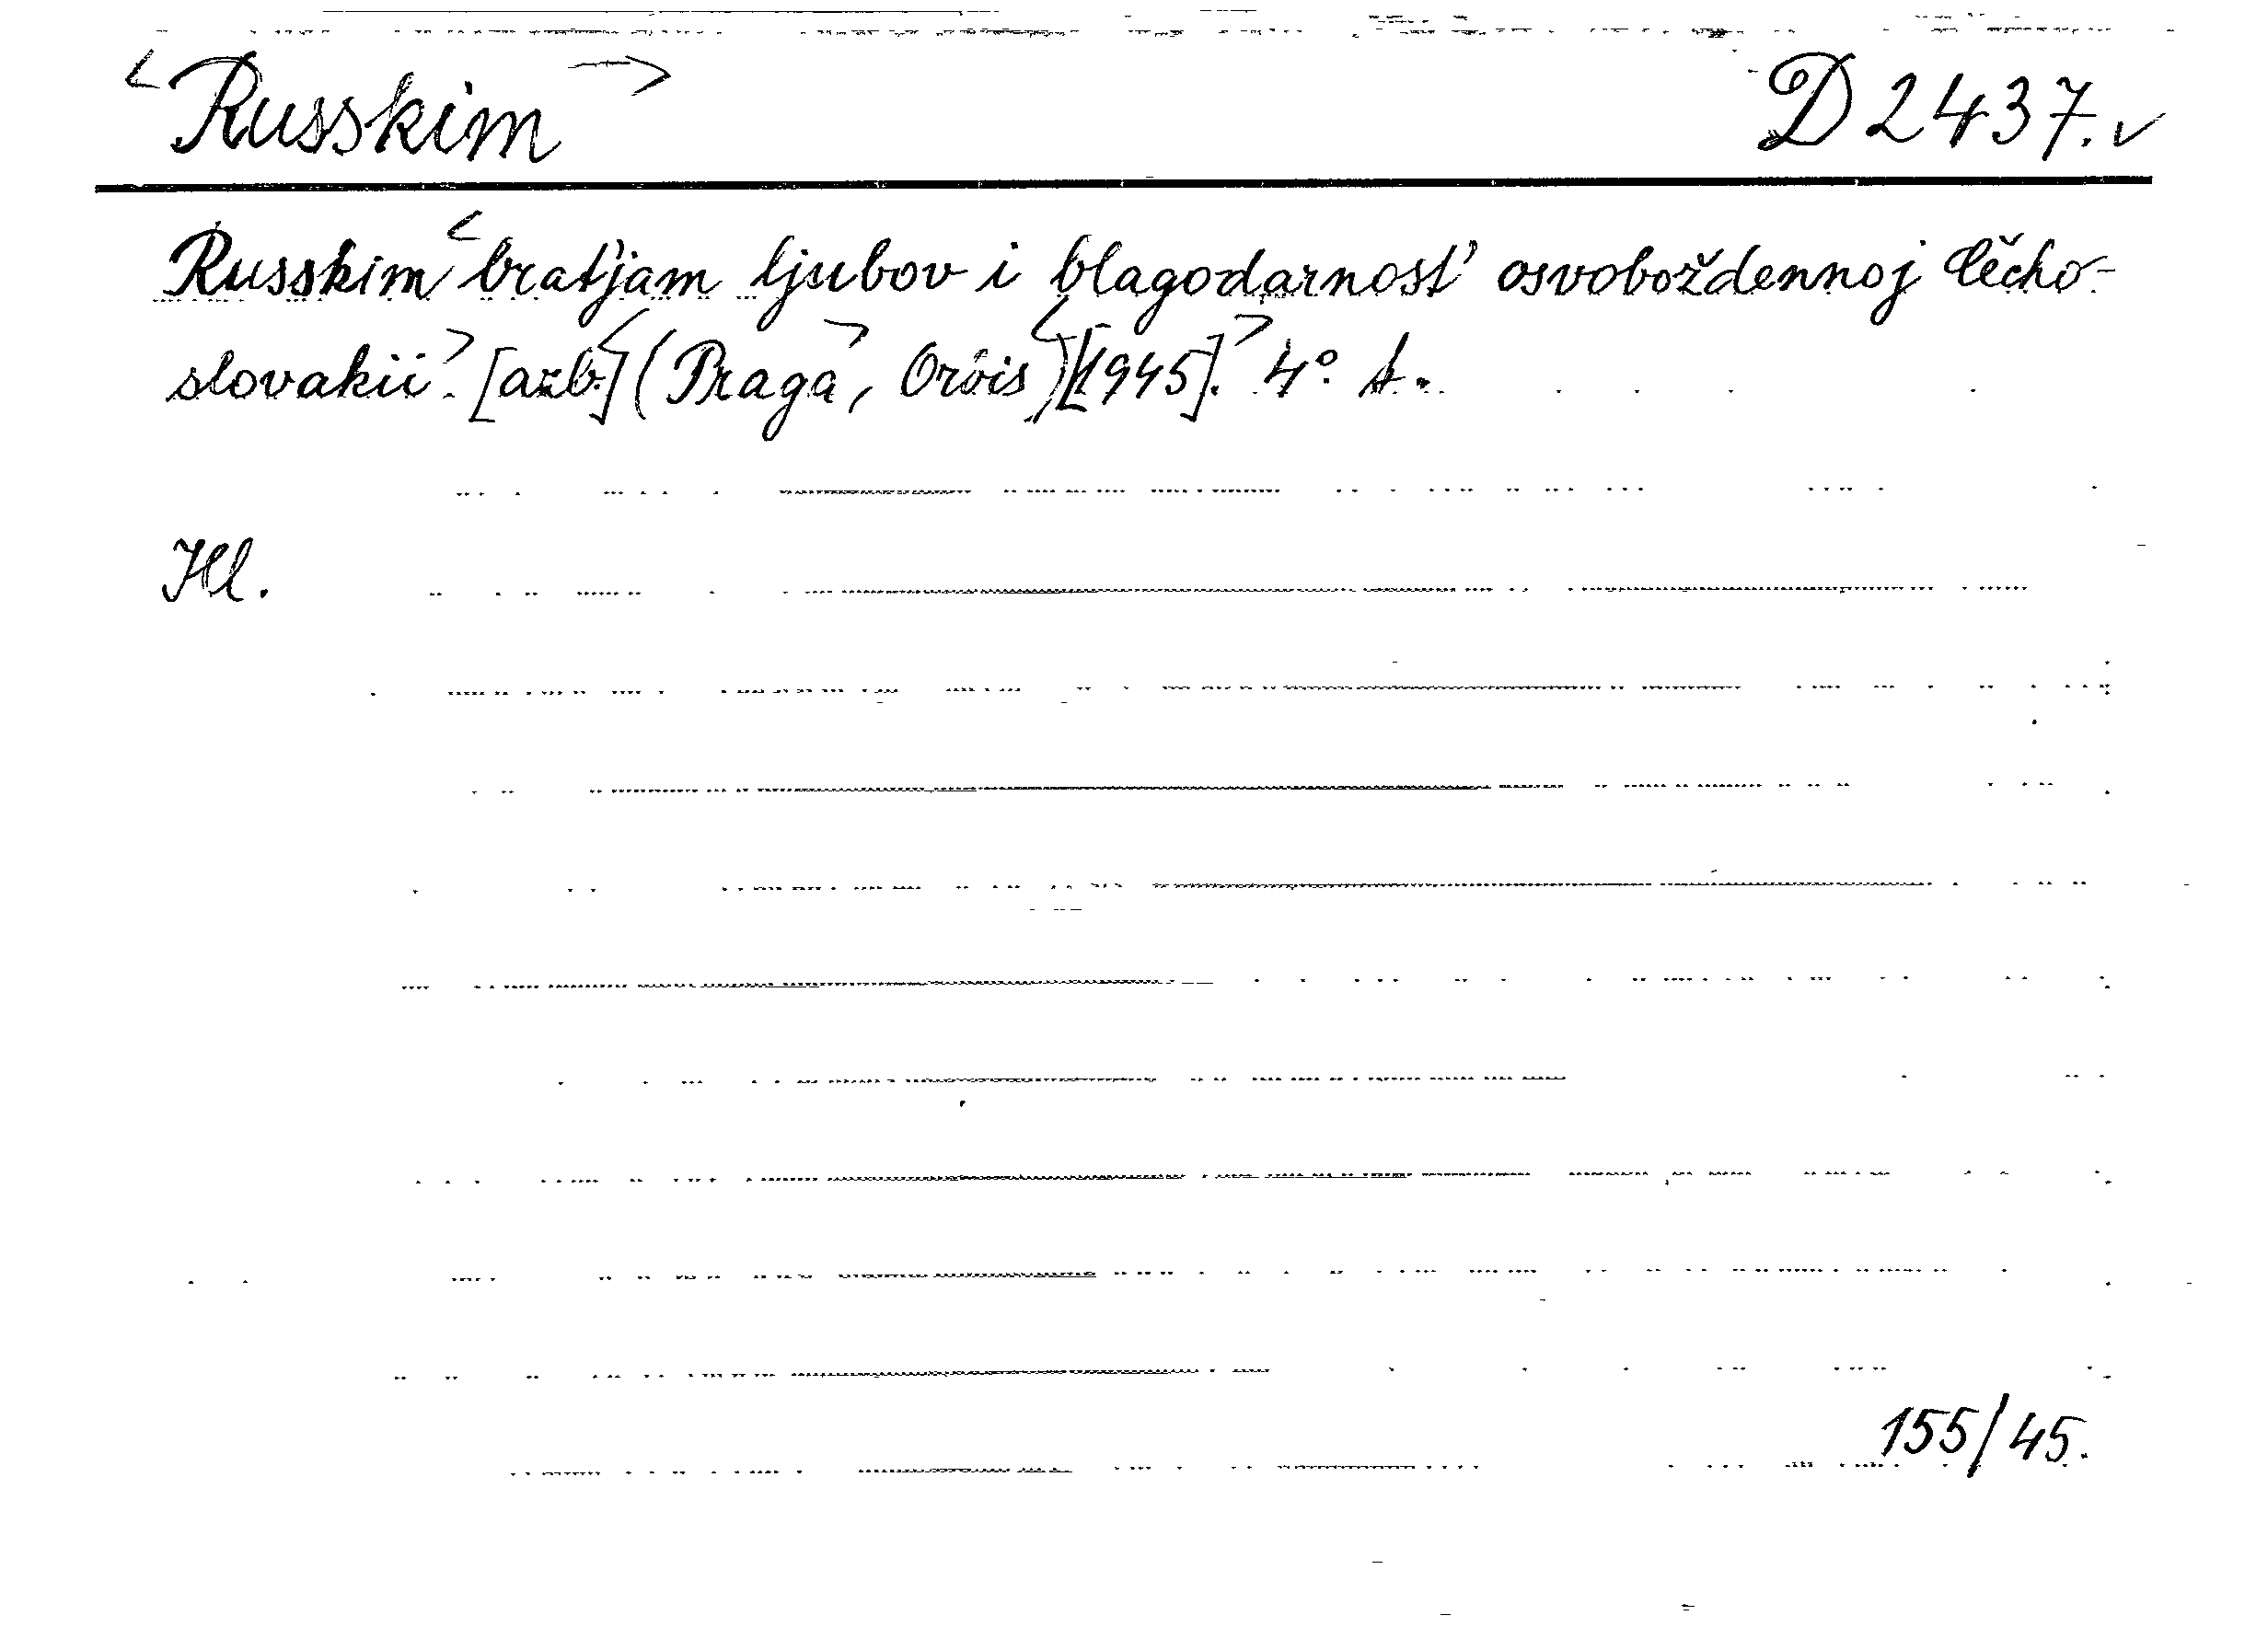 Russkim D 2437.
Russkim braťjam ljubov i blagodarnosť osvoboždennoj Čěcho-
slovakii. [azb.] (Praga, Orbis) [1945]. 4°. A.
Hl.
155/45.